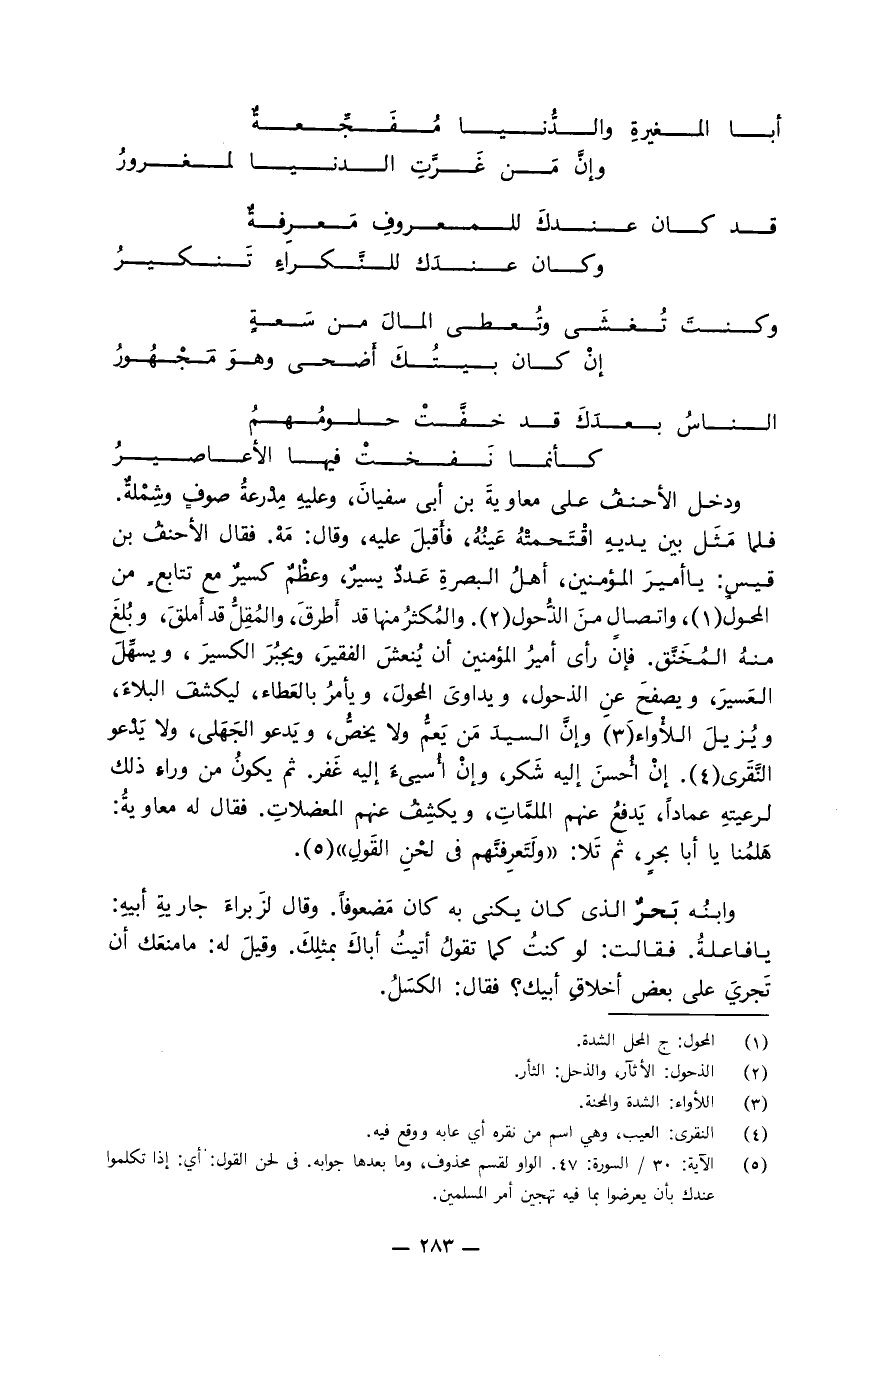 أبا المغيرةِ والدُّنيا مُفَجِّعةٌ
وإنَّ مَن غَرَّتِ الدنيا لمغرورُ
قد كان عندكَ للمعروفِ مَعرِفةٌ
وكان عندَك للنَّكراءِ تَنكيرُ
وكنتَ تُغشَى وتُعطى المالَ من سَعةٍ
إنْ كان بيتُكَ أضحى وهوَ مَجْهُورُ
الناسُ بعدَكَ قد خفَّتْ حلومُهمُ
كأنما نَفختْ فيها الأعاصيرُ
ودخل الأحنفُ على معاويةَ بن أبى سفيانَ، وعليهِ مِدْرعةُ صوفٍ وشِمْلةٌ.
فلما مَثَل بين يديهِ اقْتَحمتْهُ عَينُهُ، فأَقبلَ عليه، وقال: مَهْ. فقال الأحنفُ بن
قيسٍ: ياأميرَ المؤمنين، أهلُ البصرةِ عَددٌ يسيرٌ، وعظْمٌ كسيرٌ مع تتابعٍ من
المحول(١)، واتصالٍ منَ الذُّحول(٢). والمُكثرُ منها قد أَطرقَ، والمُقِلُّ قد أملقَ، وبُلغَ
منهُ المُخَنَّق. فإن رأى أميرُ المؤمنين أن يُنعشَ الفقيرَ، ويجبُرَ الكسيرَ، ويسهِّلَ
العَسيرَ، ويصفحَ عنِ الذحول، ويداوىَ المحولَ، ويأمرُ بالعَطاء، ليكشفَ البلاءَ،
ويُزيلَ اللأواء(٣) وإنَّ السيدَ مَن يَعمُّ ولا يخصُّ، ويَدعو الجَهلى، ولا يَدْعو
النَّقرى(٤). إنْ أُحسنَ إليه شَكر، وإنْ أُسيىءَ إليه غَفر. ثم يكونُ من وراءِ ذلك
لرعيتهِ عماداً، يَدفعُ عنهم الملمَّاتِ، ويكشِفُ عنهم المعضلات. فقال له معاويةُ:
هَلمُنا يا أبا بحرٍ، ثم تَلا: «ولَتَعرِفنَّهم فى لحْنِ القَولِ»(٥).
وابنُه بَحرٌ الذى كان يكنى به كان مَضعوفاً. وقال لزَبراءَ جاريةِ أبيهِ:
يافاعلةُ. فقالت: لو كنتُ كما تقولُ أتيتُ أباكَ بمثلِكَ. وقيلَ له: مامنعَك أن
تَجريَ على بعض أخلاقِ أبيك؟ فقال: الكسَلُ.
(١) المحول: ج المحل الشدة.
(٢) الذحول: الأثآر، والذحل: الثأر.
(٣) اللأواء: الشدة والمحنة.
(٤) النقرى: العيب، وهي اسم من نقره أي عابه ووقع فيه.
(٥) الآية: ٣٠ / السورة: ٤٧. الواو لقسم محذوف، وما بعدها جوابه. فى لحن القول: أي: إذا تكلموا
عندك بأن يعرضوا بما فيه تهجين أمر المسلمين.
— ٢٨٣ —